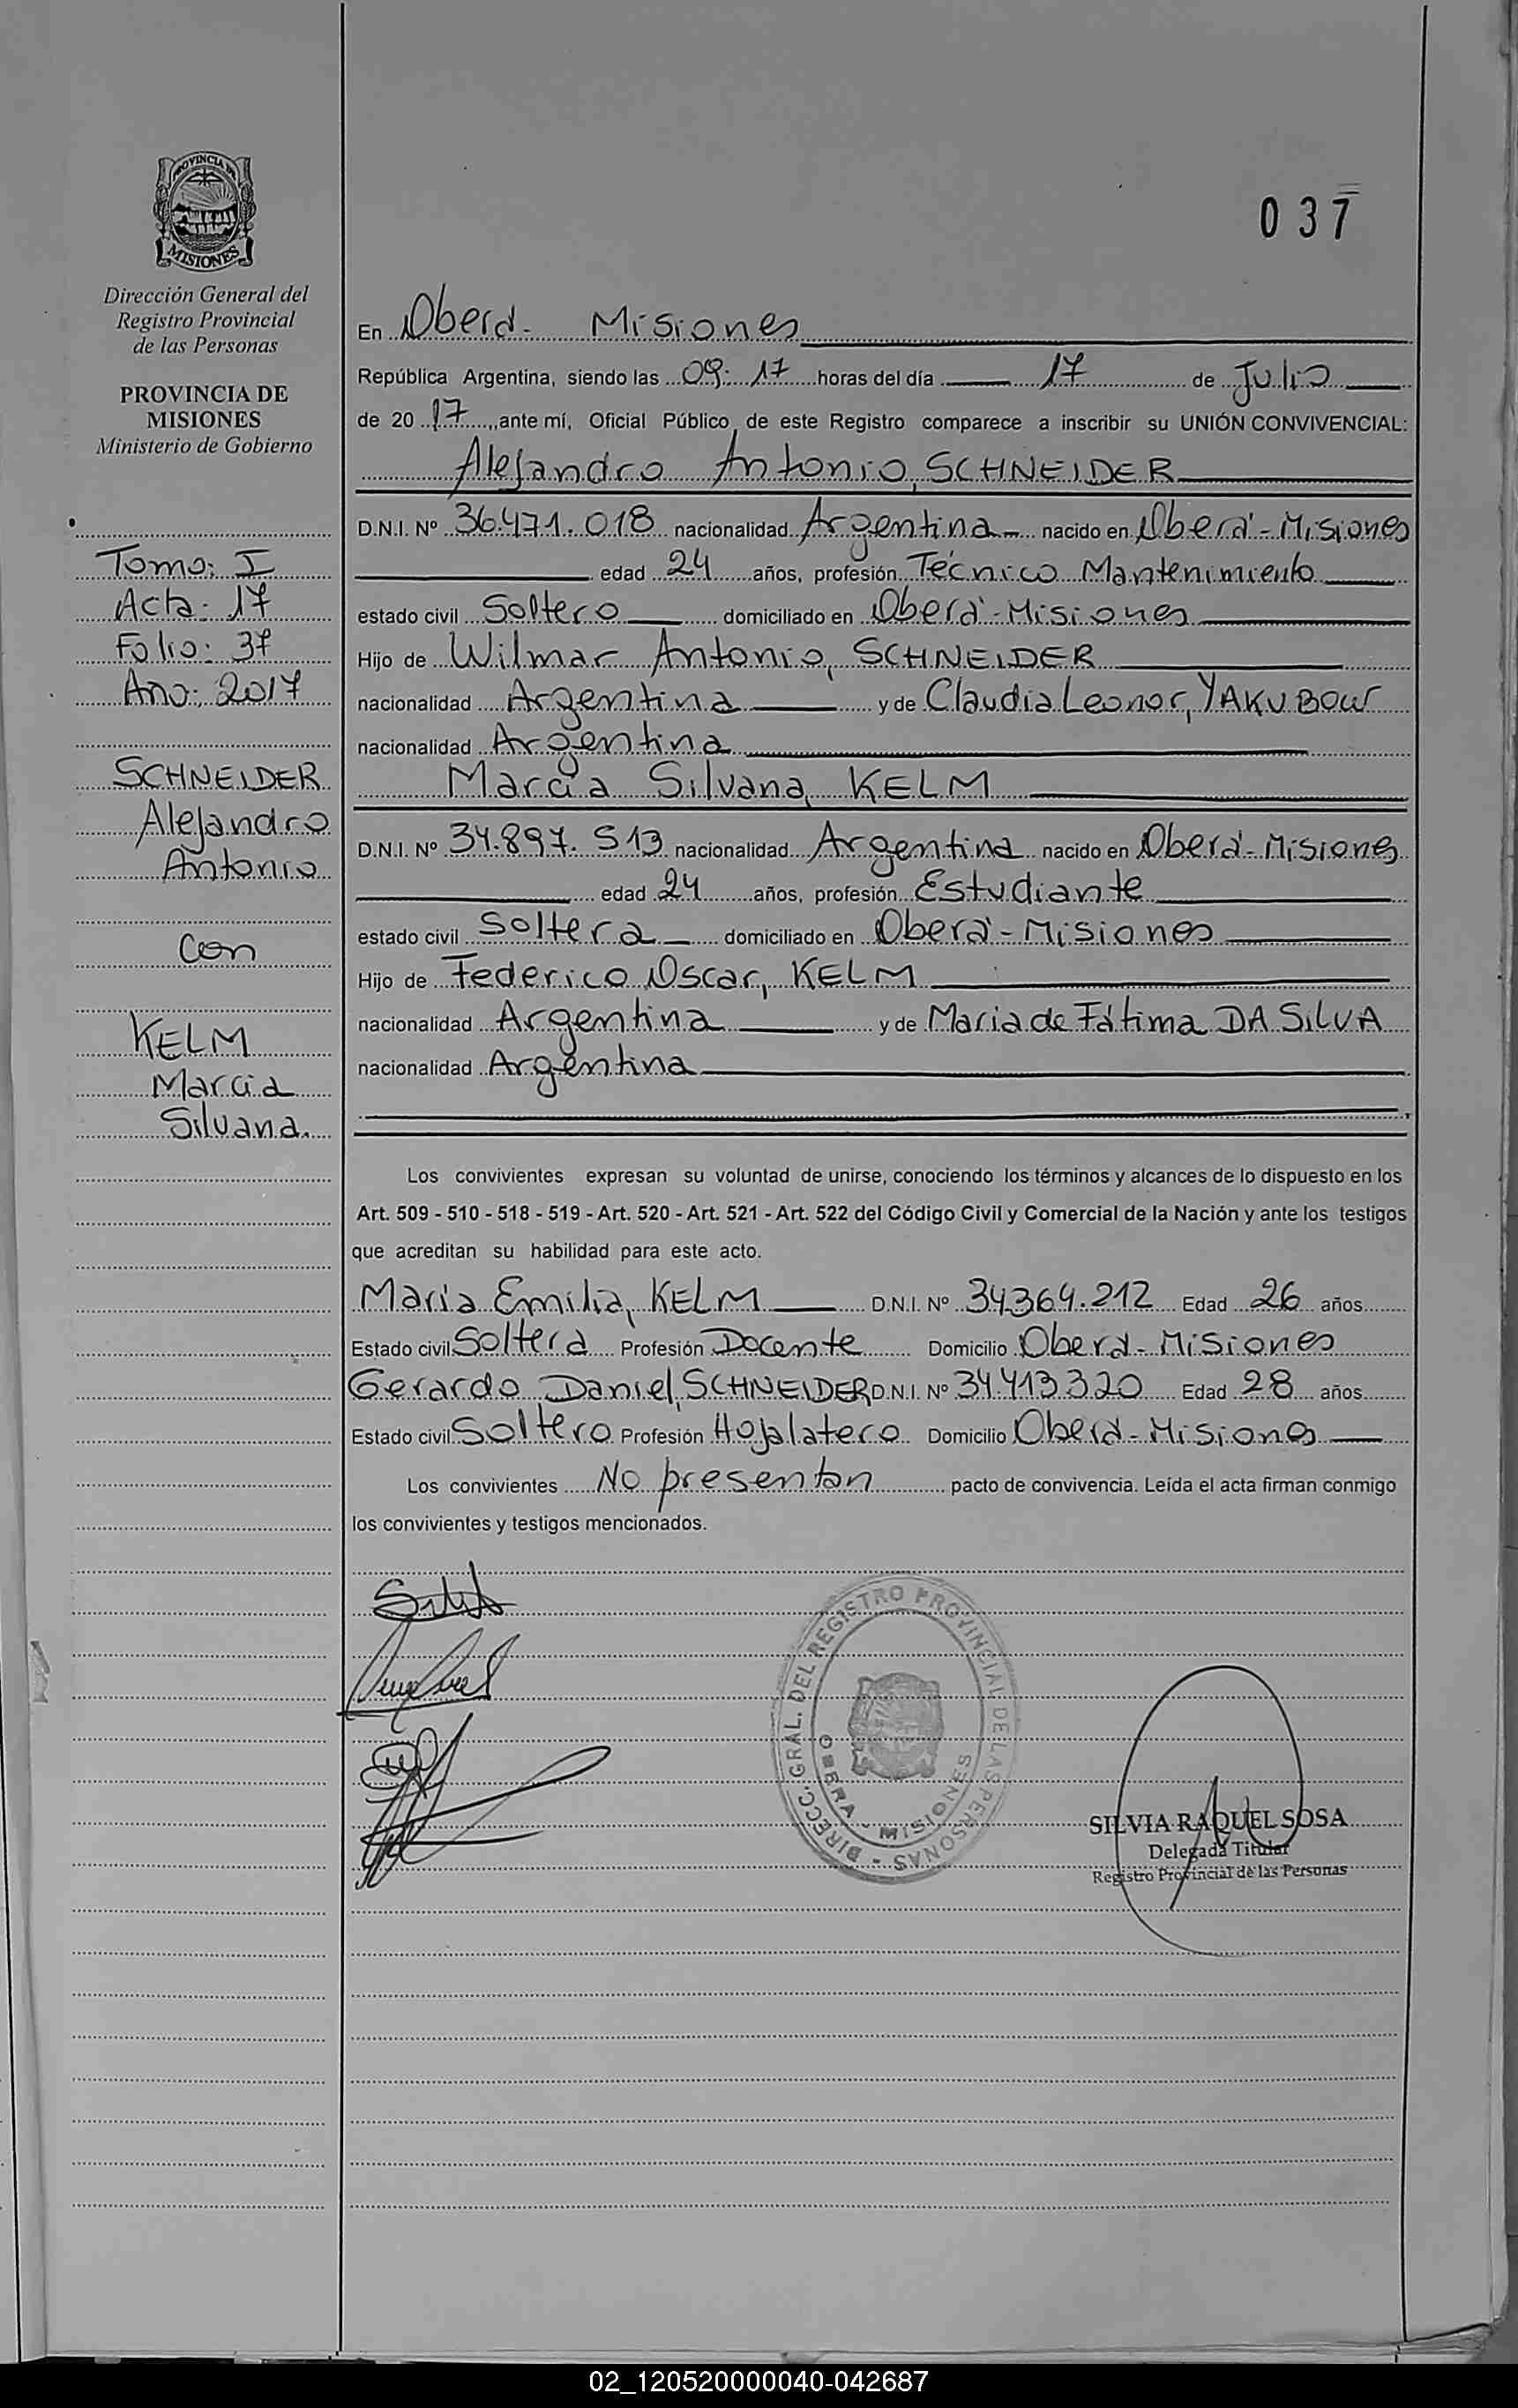 PROVINCIA DE
MISIONES
Dirección General del
Registro Provincial
de las Personas
PROVINCIA DE
MISIONES
Ministerio de Gobierno
Tomo: I
Acta: 17
Folio: 37
Año: 2017
SCHNEIDER
Alejandro
Antonio
Con
KELM
Marcia
Silvana.
037
En Oberá - Misiones
República Argentina, siendo las 09:17 horas del día 17 de Julio
de 2017, ante mí, Oficial Público de este Registro comparece a inscribir su UNIÓN CONVIVENCIAL:
Alejandro Antonio, SCHNEIDER
D.N.I. Nº 36.471.018 nacionalidad Argentina nacido en Oberá - Misiones
edad 24 años, profesión Técnico Mantenimiento
estado civil Soltero domiciliado en Oberá - Misiones
Hijo de Wilmar Antonio, SCHNEIDER
nacionalidad Argentina y de Claudia Leonor, YAKUBOW
nacionalidad Argentina
Marcia Silvana, KELM
D.N.I. Nº 34.897.513 nacionalidad Argentina nacido en Oberá - Misiones
edad 24 años, profesión Estudiante
estado civil Soltera domiciliado en Oberá - Misiones
Hijo de Federico Oscar, KELM
nacionalidad Argentina y de Maria de Fátima DA SILVA
nacionalidad Argentina
Los convivientes expresan su voluntad de unirse, conociendo los términos y alcances de lo dispuesto en los
Art. 509 - 510 - 518 - 519 - Art. 520 - Art. 521 - Art. 522 del Código Civil y Comercial de la Nación y ante los testigos
que acreditan su habilidad para este acto.
Maria Emilia, KELM D.N.I. Nº 34.364.212 Edad 26 años
Estado civil Soltera Profesión Docente Domicilio Oberá - Misiones
Gerardo Daniel, SCHNEIDER D.N.I. Nº 34.413.320 Edad 28 años
Estado civil Soltero Profesión Hojalatero Domicilio Oberá - Misiones
Los convivientes No presentan pacto de convivencia. Leída el acta firman conmigo
los convivientes y testigos mencionados.
DIRECC. GRAL. DEL REGISTRO PROVINCIAL DE LAS PERSONAS -
OBERA - MISIONES
SILVIA RAQUEL SOSA
Delegada Titular
Registro Provincial de las Personas
02_120520000040-042687